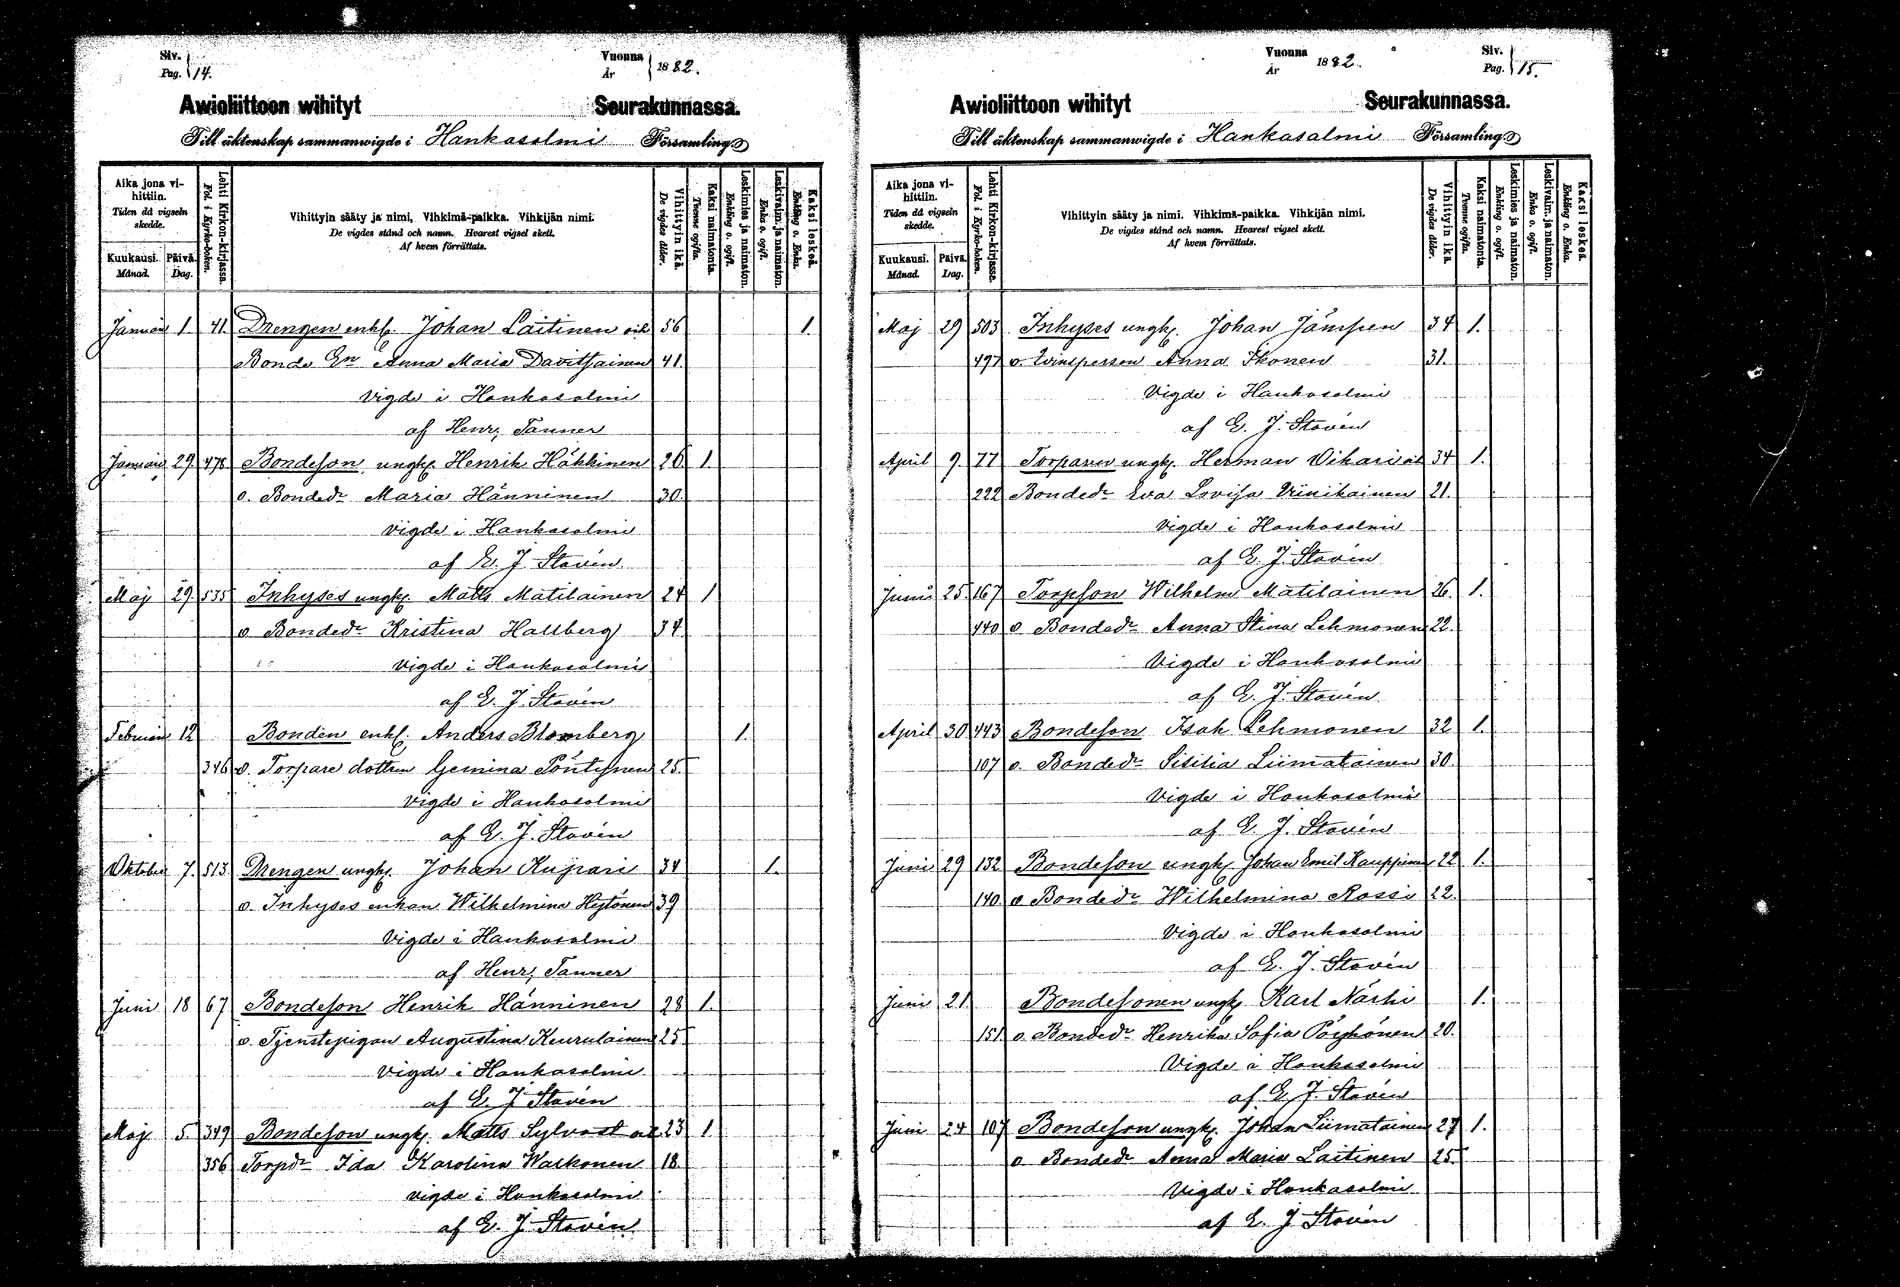 Siv.
Pag. 14.
Vuonna
År 1882.
Awioliittoon wihityt Seurakunnassa.
Till äktenskap sammanwigde i Hankasalmi Församling
Aika jona vihittiin.
Tiden då vigseln skedde.
Kuukausi.
Månad.
Päivä.
Dag.
Lehti Kirkon-kirjassa.
Fol. i Kyrko-boken.
Vihittyin sääty ja nimi, Vihkimä-paikka. Vihkijän nimi.
De vigdes stånd och namn. Hvarest vigsel skett.
Af hvem förrättats.
Vihittyin ikä.
De vigdes ålder.
Kaksi naimatonta.
Tvenne ogifta.
Leskimies ja naimaton.
Enkling o. ogift.
Leskivaim. ja naimaton.
Enka o. ogift.
Kaksi leskeä.
Enkling o. Enka.
Januari 1. 41. Drengen enkl. Johan Laitinen och 56 1.
Bonde En Anna Maria Davitsainen 41.
vigde i Hankasalmi
af Henr. Tanner
Januari 29. 478 Bondeson ungk. Henrik Häkkinen 26. 1.
o. Bondedr Maria Hänninen 30.
vigde i Hankasalmi
af E. J. Stavén
Maj 29. 535 Inhyses ungk. Matts Matilainen 24 1
o Bondedr Kristina Hallberg 34
vigde i Hankasalmi
af E. J. Stavén
Februari 12 Bonden enkl. Anders Blomberg 1.
346 o. Torpare dottren Gemina Pöntynen 25.
vigde i Hankasalmi
af E. J. Stavén
Oktober 7. 513. Drengen ungk. Johan Kupari 34 1.
o. Inhyses enkan Wilhelmina Hytönen 39
vigde i Hankasalmi
af Henr. Tanner
Juni 18 67 Bondeson Henrik Hänninen 28 1.
o. Tjenstepigan Augustina Keurulainen 25
vigde i Hankasalmi
af E. J. Stavén
Maj 5. 349 Bondeson ungk. Matts Sylvast och 23 1
356 Torpdr Ida Karolina Walkonen 18.
vigde i Hankasalmi
af E. J. Stavén
Vuonna
År 1882.
Siv.
Pag. 15.
Awioliittoon wihityt Seurakunnassa.
Till äktenskap sammanwigde i Hankasalmi Församling
Aika jona vihittiin.
Tiden då vigseln skedde.
Kuukausi.
Månad.
Päivä.
Dag.
Lehti Kirkon-kirjassa.
Fol. i Kyrko-boken.
Vihittyin sääty ja nimi. Vihkimä-paikka. Vihkijän nimi.
De vigdes stånd och namn. Hvarest vigsel skett.
Af hvem förrättats.
Vihittyin ikä.
De vigdes ålder.
Kaksi naimatonta.
Tvenne ogifta.
Leskimies ja naimaton.
Enkling o. ogift.
Leskivaim. ja naimaton.
Enka o. ogift.
Kaksi leskeä.
Enkling o. Enka.
Maj 29 503 Inhyses ungk. Johan Jämpen 34 1.
497 o. Anna Ikonen 31.
Vigde i Hankasalmi
af E. J. Stavén
April 9. 77 Torparen ungk. Herman Vikari och 34 1.
222 Bondedr Eva Lovisa Viinikainen 21.
Vigde i Hankasalmi
af E. J. Stavén
Juni 25. 167 Torpson Wilhelm Matilainen 26. 1.
440 o Bondedr Anna Stina Lehmonen 22.
Vigde i Hankasalmi
af E. J. Stavén
April 30 443 Bondeson Isak Lehmonen 32 1.
107 o. Bondedr Sisilia Liimatainen 30.
Vigde i Hankasalmi
af E. J. Stavén
Juni 29 132 Bondeson ungk. Johan Emil Kauppinen 22 1.
140 o Bondedr Wilhelmina Rossi 22.
Vigde i Hankasalmi
af E. J. Stavén
Juni 21. Bondesonen ungk. Karl Närhi 1.
151. o. Bondedr Henrika Sofia Pöyhönen 20.
Vigde i Hankasalmi
af E. J. Stavén
Juni 24 107 Bondeson ungk. Johan Liimatainen 27 1.
o Bondedr Anna Maria Laitinen 25.
Vigde i Hankasalmi
af E. J. Stavén